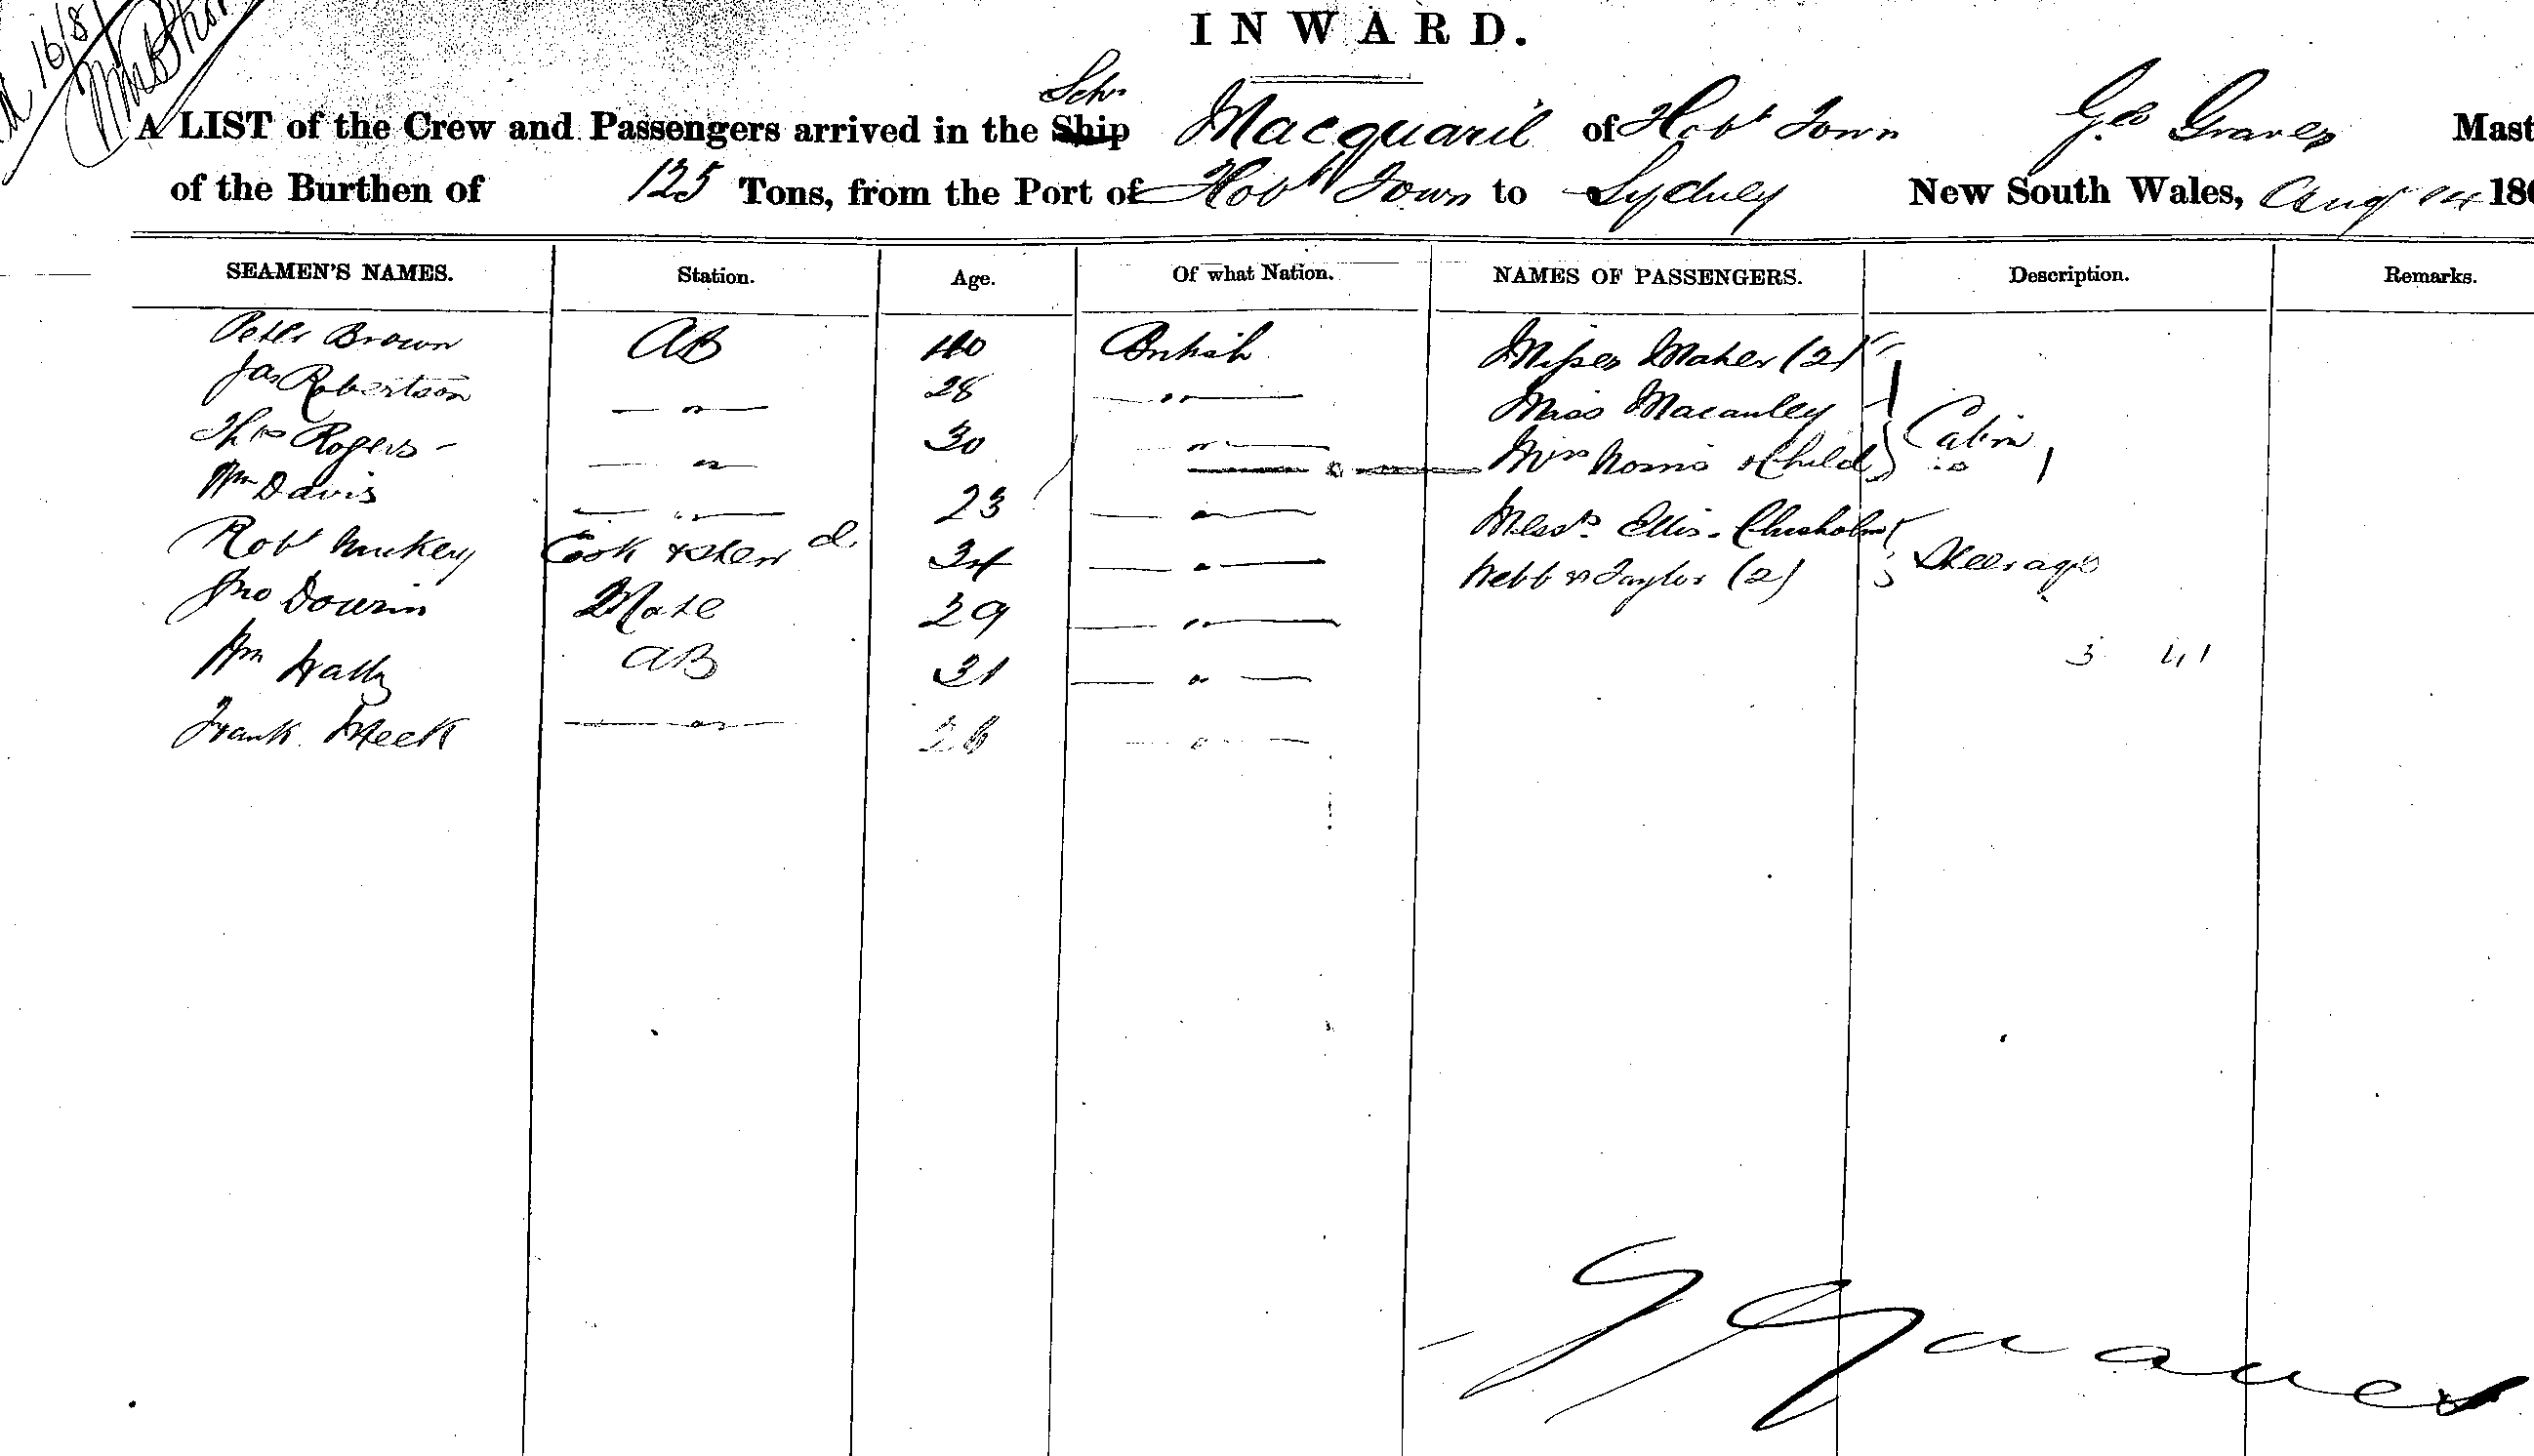 INWARD.
Schr
A LIST of the Crew and Passengers arrived in the Ship Macquarie of Hobt Town Geo Graves Mast
of the Burthen of 125 Tons, from the Port of Hobt Town to Sydney New South Wales, Aug 14 186
SEAMEN'S NAMES. Station. Age. Of what Nation. NAMES OF PASSENGERS. Description. Remarks.
Peter Brown AB 40 British Misses Maher (2)
Jas Robertson — " — 28 — " — Miss Macaulley
Thos Rogers — " — 30 " — Mrs Norris & Child Cabin
Wm Davis — " — 23 — " — Messrs Ellis. Chisholm
Robt Cook & Stewd 34 — " — Webb & Taylor (2) Steerage
Jno Dowrin Mate 29 — " —
Wm AB 31 — " —
Frank — " — 26 — " —
G Graves